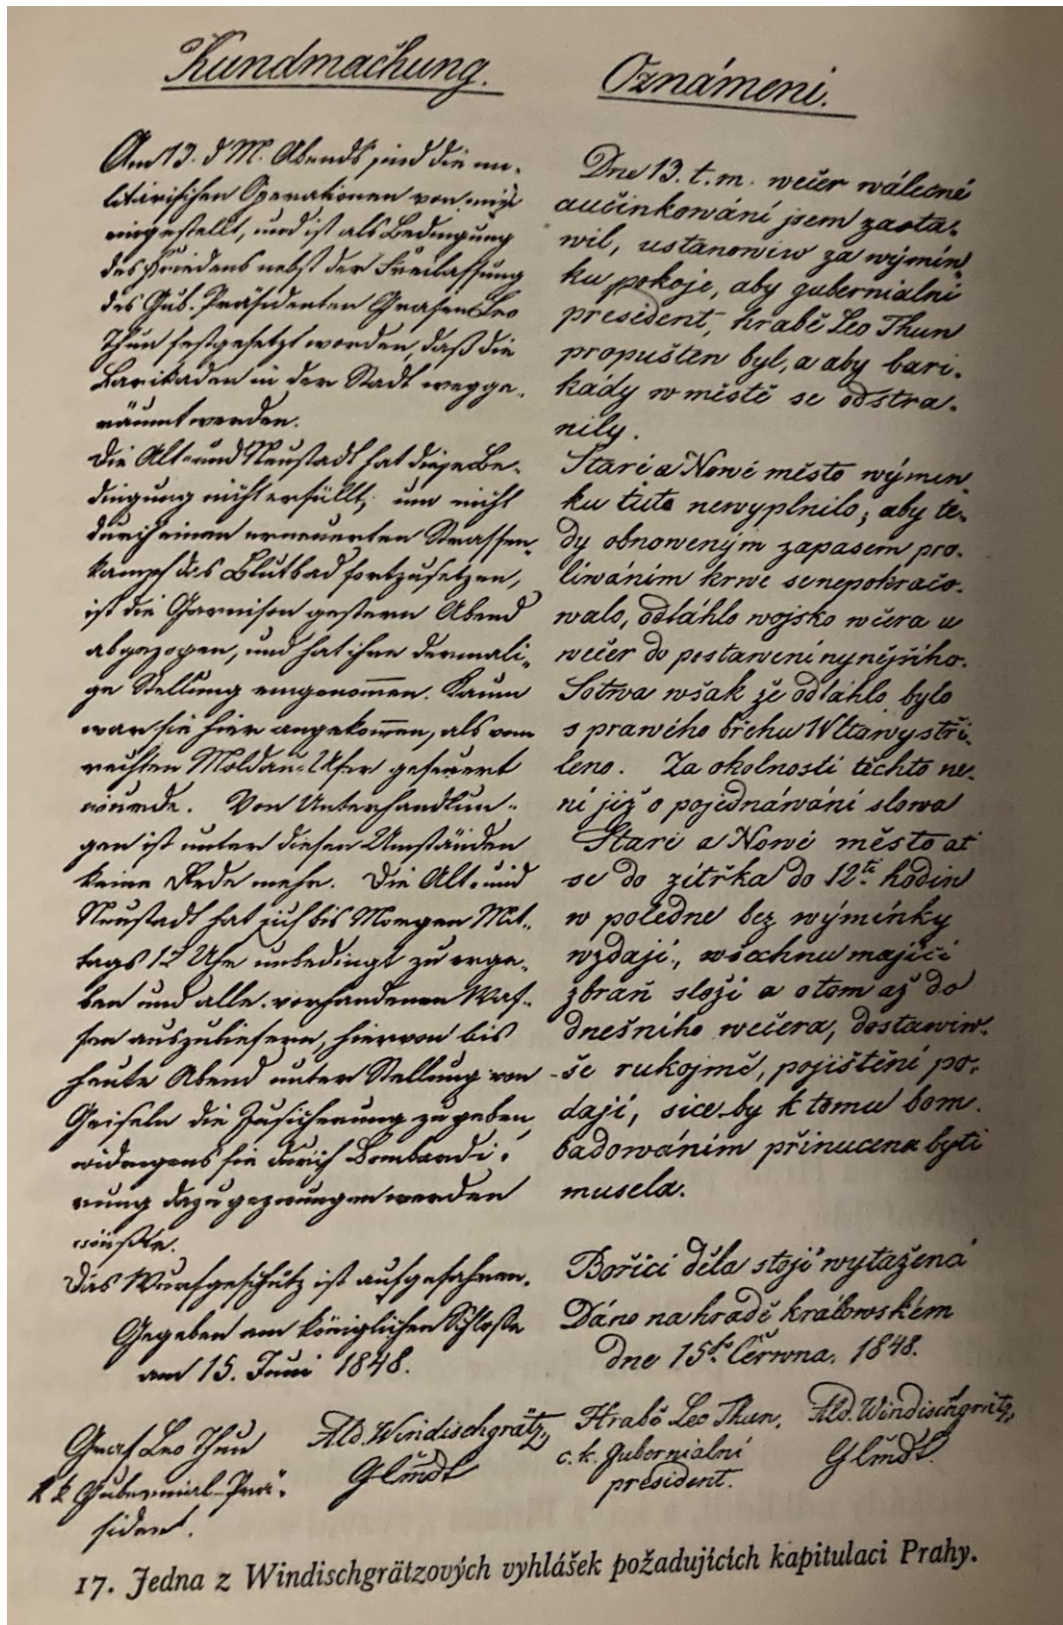 Kundmachung.
Am 13. d M. Abends sind die mi-
litärischen Operationen von mir
eingestellt, und ist als Bedingung
des Friedens nebst der Freilassung
des Gub. Präsidenten Grafen Leo
Thun festgesetzt worden, daß die
Barikaden in der Stadt wegge-
räumt werden.
Die Alt- und Neustadt hat diese Be-
dingung nicht erfüllt; um nicht
durch einen erneuerten Strassen-
kampf das Blutbad fortzusetzen,
ist die Garnison gestern Abend
abgezogen, und hat ihre dermali-
ge Stellung eingenommen. Kaum
war sie hier angekommen, als vom
rechten Moldau-Ufer gefeuert
wurde. Von Unterhandlun-
gen ist unter diesen Umständen
keine Rede mehr. Die Alt- und
Neustadt hat sich bis Morgen Mit-
tags 12 Uhr unbedingt zu erge-
ben und alle vorhandenen Waf-
fen auszuliefern, hiervon bis
heute Abend unter Stellung von
Geiseln die Zusicherung zu geben,
widrigens sie durch Bombardi-
rung dazu gezwungen werden
müßte.
Das Wurfgeschütz ist aufgefahren.
Gegeben am königlichen Schloße
am 15. Juni 1848.
Graf Leo Thun
k k Gubernial-Prä-
sident.
Ald. Windischgrätz,
Glmdt
Oznámeni.
Dne 13. t. m. wečer wálečné
aučinkowání jsem zasta-
wil, ustanowiw za wýmin-
ku pokoje, aby gubernialní
president, hrabě Leo Thun
propuštěn byl, a aby bari-
kády w městě se odstra-
nily.
Staré a Nowé město wýmin-
ku tuto newyplnilo; aby te-
dy obnoweným zapasem pro-
léwáním krwe se nepokračo-
walo, odtáhlo wojsko wčera u
wečer do postawení nynějšího.
Sotwa však že odtáhlo, bylo
s prawého břehu Wltawy stří-
leno. Za okolností těchto ne-
ní již o pojednáwání slowa
Staré a Nowé město ať
se do zítřka do 12té hodin
w poledne bez wýmínky
wzdají, wšechnu majíčí
zbraň složí a o tom až do
dnešního wečera, dostawiw-
še rukojmě, pojištění po-
dají, sice by k tomu bom-
badowáním přinucena byti
musela.
Bořící děla stojí wytažená
Dáno na hradě králowském
dne 15ho Čerwna. 1848.
Hrabě Leo Thun,
c. k. gubernialní
president.
Ald. Windischgrätz,
Glmdt.
17. Jedna z Windischgrätzových vyhlášek požadujících kapitulaci Prahy.